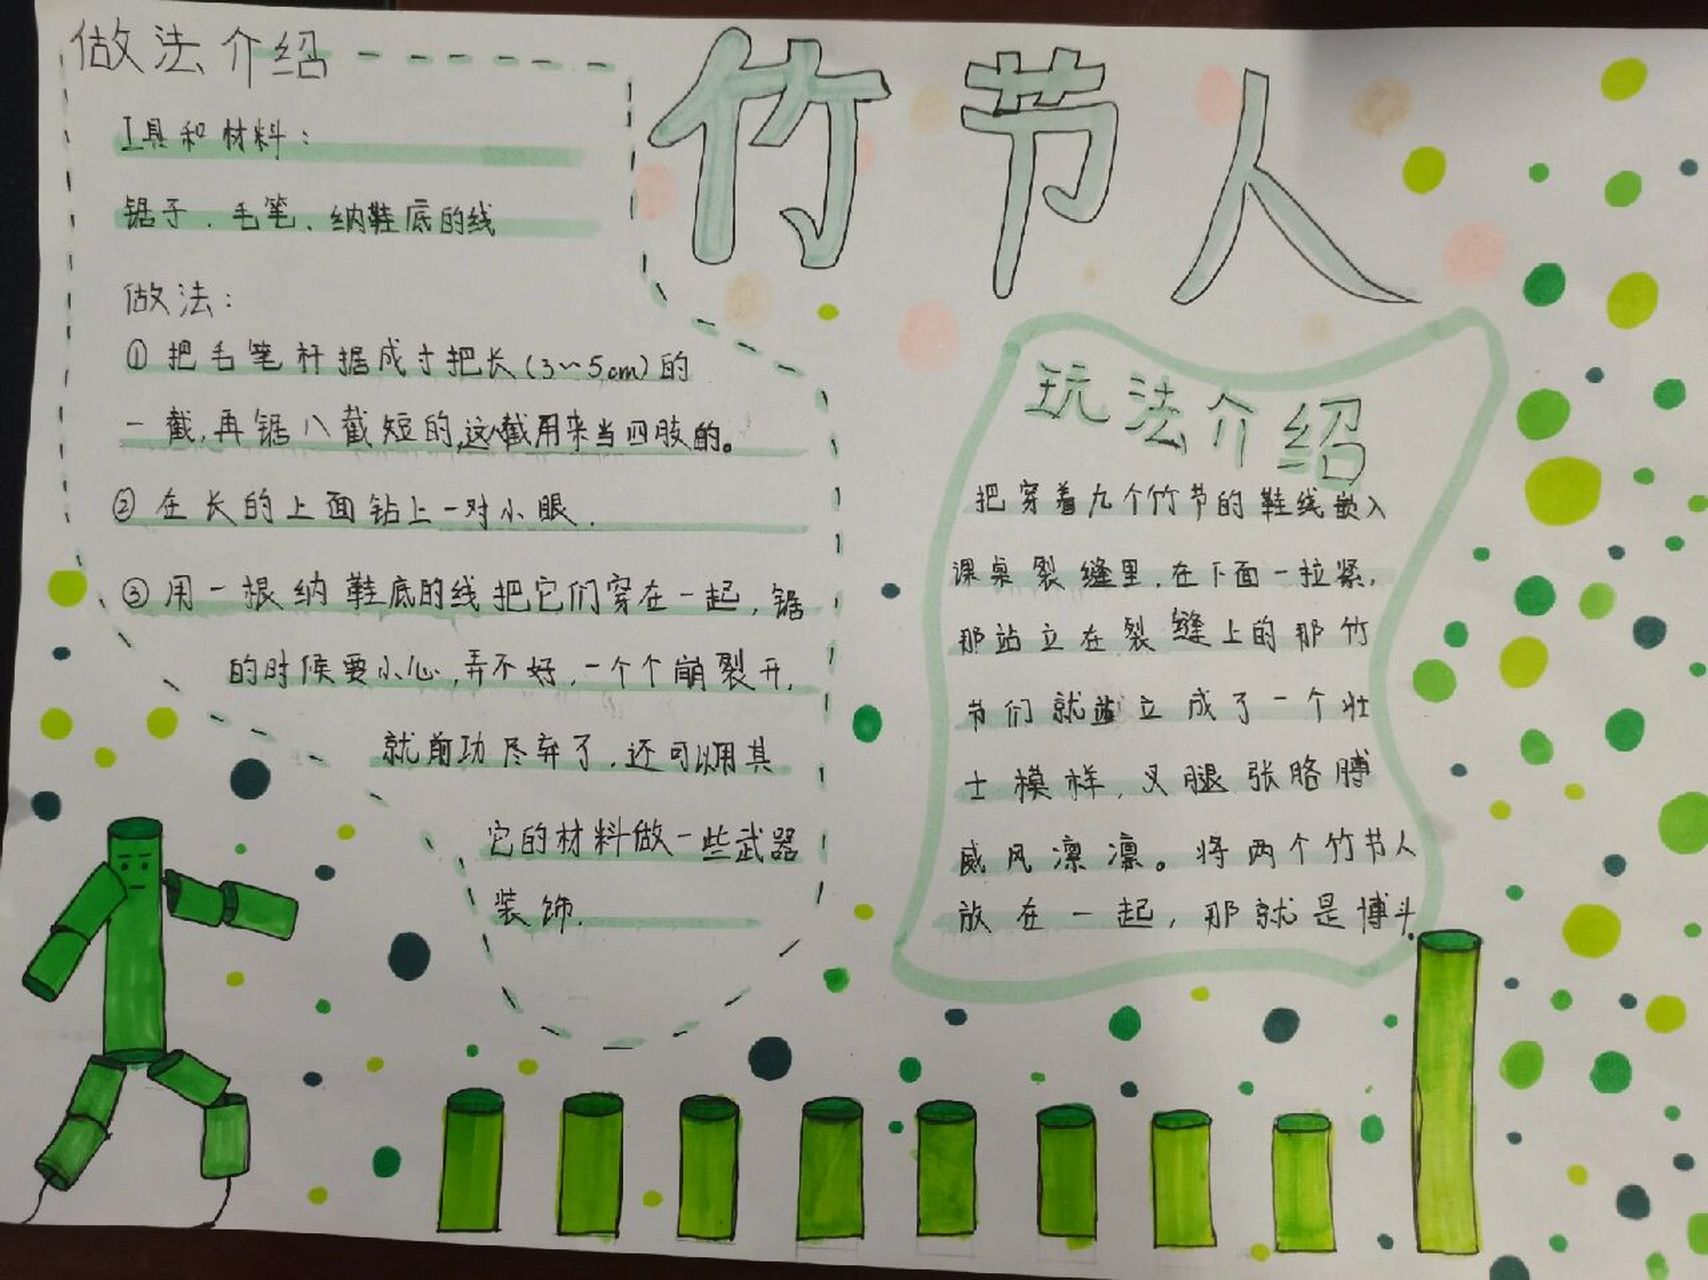 竹节人
做法介绍
工具和材料：
锯子、毛笔、纳鞋底的线
做法：
①把毛笔杆据成寸把长(3~5cm)的
一截,再锯八截短的,这八截用来当四肢的。
②在长的上面钻上一对小眼.
③用一根纳鞋底的线把它们穿在一起,锯
的时候要小心,弄不好,一个个崩裂开,
就前功尽弃了.还可以用其
它的材料做一些武器
装饰.
玩法介绍
把穿着九个竹节的鞋线嵌入
课桌裂缝里,在下面一拉紧,
那站立在裂缝上的那竹
节们就立成了一个壮
士模样,叉腿张胳膊
威风凛凛。将两个竹节人
放在一起,那就是博斗.